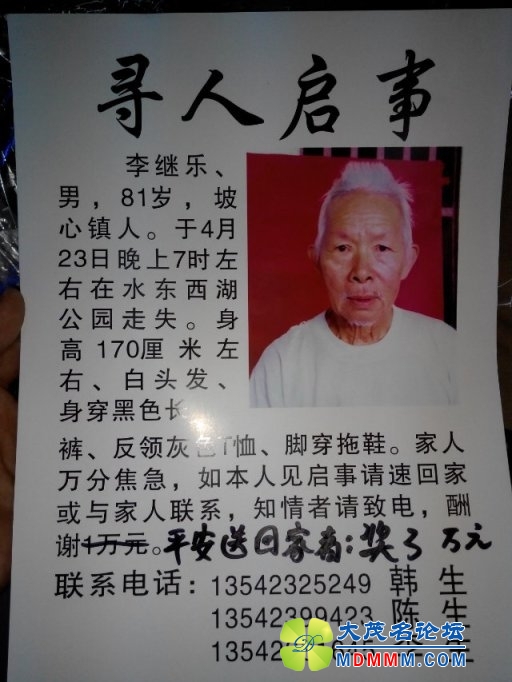 寻人启事
李继乐、
男，81岁，坡
心镇人。于4月
23日晚上7时左
右在水东西湖
公园走失。身
高170厘米左
右、白头发、
身穿黑色长
裤、反领灰色T恤、脚穿拖鞋。家人
万分焦急，如本人见启事请速回家
或与家人联系，知情者请致电，酬
谢1万元。平安送回家者：奖3万元
联系电话：13542325249 韩生
13542399423 陈生
13542 生
大茂名论坛
MDMMM.COM